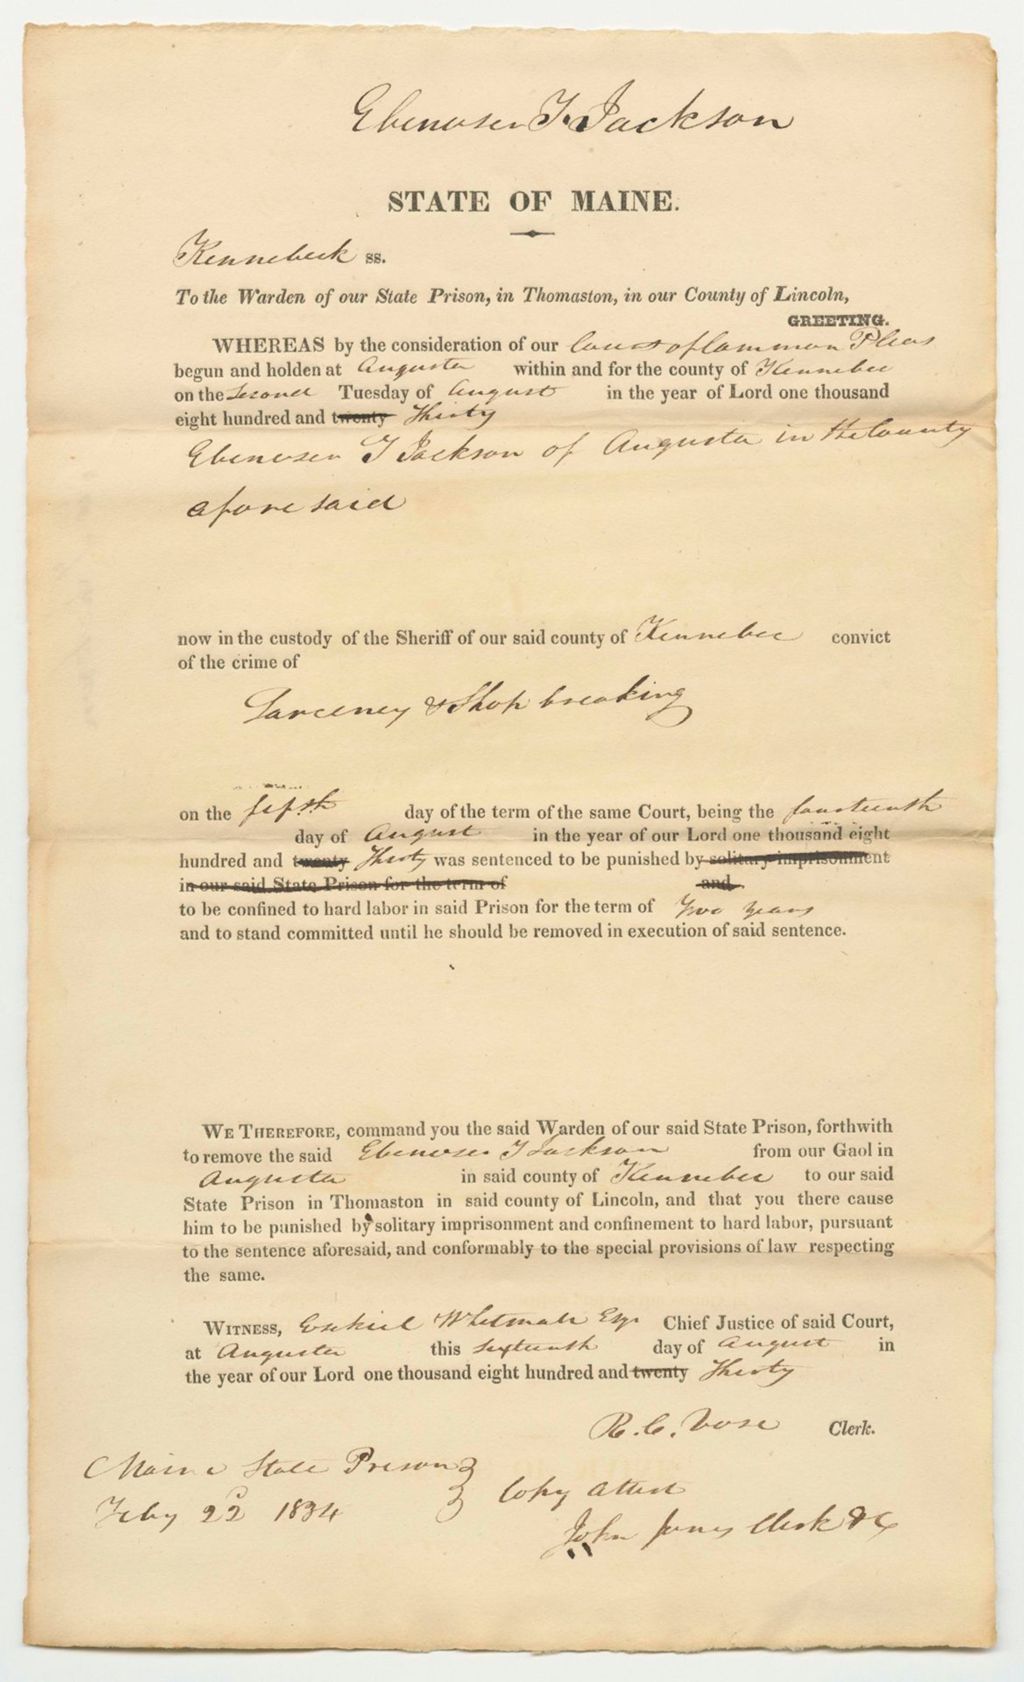 Ebenezer T. Jackson
STATE OF MAINE.
Kennebeck ss.
To the Warden of our State Prison, in Thomaston, in our County of Lincoln,
GREETING.
WHEREAS by the consideration of our Court of Common Pleas
begun and holden at Augusta within and for the county of Kennebec
on the Second Tuesday of August in the year of Lord one thousand
eight hundred and twenty Thirty
Ebenezer T Jackson of Augusta in the County
afore said
now in the custody of the Sheriff of our said county of Kennebec convict
of the crime of
Larceney & Shop breaking
on the fifth day of the term of the same Court, being the fourteenth
day of August in the year of our Lord one thousand eight
hundred and twenty Thirty was sentenced to be punished by solitary imprisonment
in our said State Prison for the term of and
to be confined to hard labor in said Prison for the term of Two years
and to stand committed until he should be removed in execution of said sentence.
WE THEREFORE, command you the said Warden of our said State Prison, forthwith
to remove the said Ebenezer T Jackson from our Gaol in
Augusta in said county of Kennebec to our said
State Prison in Thomaston in said county of Lincoln, and that you there cause
him to be punished by solitary imprisonment and confinement to hard labor, pursuant
to the sentence aforesaid, and conformably to the special provisions of law respecting
the same.
WITNESS, Ezekiel Whitman Esqr Chief Justice of said Court,
at Augusta this sixteenth day of August in
the year of our Lord one thousand eight hundred and twenty Thirty
R. C. Vose Clerk.
Maine State Prison
Feby 22d 1834
Copy Attest
John Jones Clerk &c